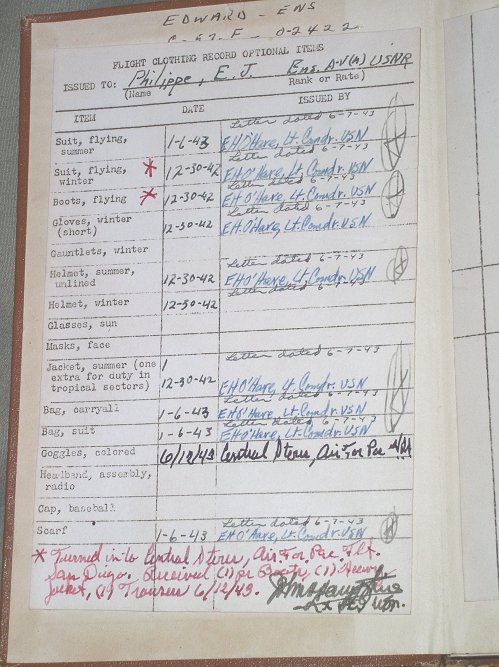 EDWARD - ENS
C-67.F - 0-2422
FLIGHT CLOTHING RECORD OPTIONAL ITEMS
ISSUED TO: Philippe, E. J. Ens. A-V(N) USNR
(Name Rank or Rate)
ITEM DATE ISSUED BY
Letter dated 6-7-43
Suit, flying, summer 1-6-43 EH O'Hare, Lt. Comdr. USN
Letter dated 6-7-43
Suit, flying, winter * 12-30-42 EH O'Hare, Lt. Comdr. USN
Letter dated 6-7-43
Boots, flying * 12-30-42 EH O'Hare, Lt. Comdr. USN
Letter dated 6-7-43
Gloves, winter (short) 12-30-42 EH O'Hare, Lt. Comdr. USN
Gauntlets, winter
Letter dated 6-7-43
Helmet, summer, unlined 12-30-42 EH O'Hare, Lt. Comdr. USN
Letter dated 6-7-43
Helmet, winter 12-30-42
Glasses, sun
Masks, face
Letter dated 6-7-43
Jacket, summer (one extra for duty in tropical sectors) 12-30-42 EH O'Hare, Lt. Comdr. USN
Letter dated 6-7-43
Bag, carryall 1-6-43 EH O'Hare, Lt. Comdr. USN
Letter dated 6-7-43
Bag, suit 1-6-43 EH O'Hare, Lt. Comdr. USN
Goggles, colored 6/12/43 Central Stores, Air For Pac
Headband, assembly, radio
Cap, baseball
Letter dated 6-7-43
Scarf 1-6-43 EH O'Hare, Lt. Comdr. USN
* Turned in to Central Stores, Air For Pac. Flt.
San Diego. Received (1) pr Boots, (1) Heavy
Jacket, (1) Trousers 6/12/43.